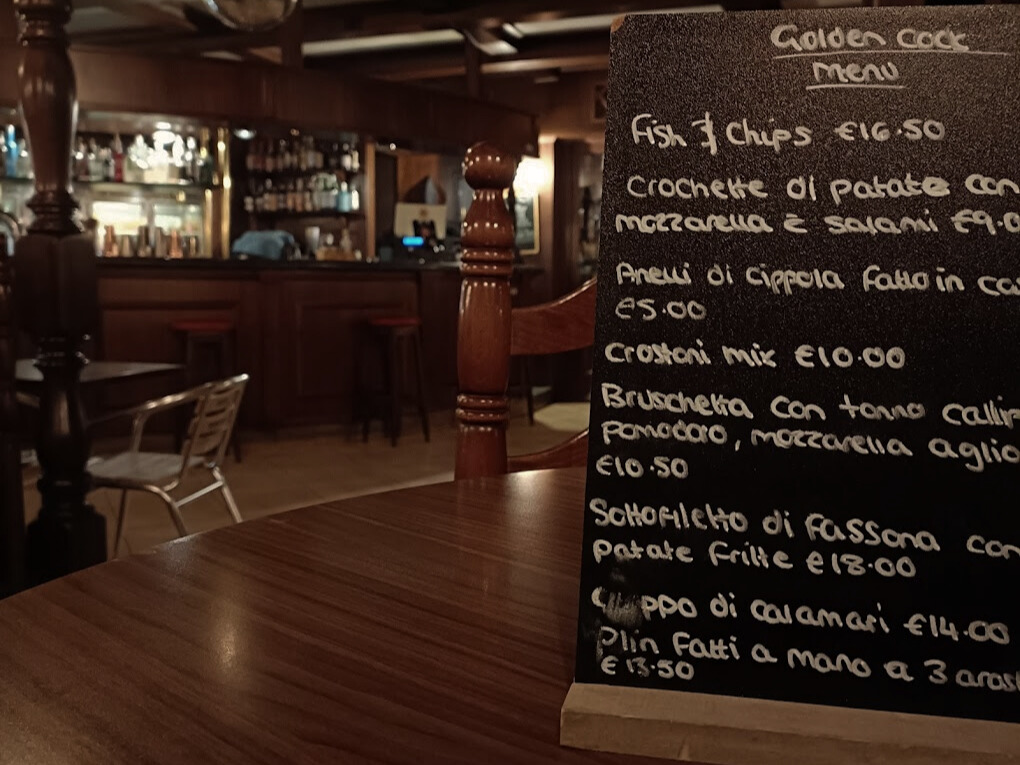 Golden Cock
Menu
Fish & Chips €16.50
Crochette di patate con
mozzarella E salami €9.0
Anelli di cippola fatto in ca
€5.00
Crostoni mix €10.00
Bruschetta con tonno
pomodoro, mozzarella aglio
€10.50
Sottofiletto di Fassona con
patate fritte €18.00
di calamari €14.00
Plin Fatti a mano a 3 arost
€13.50